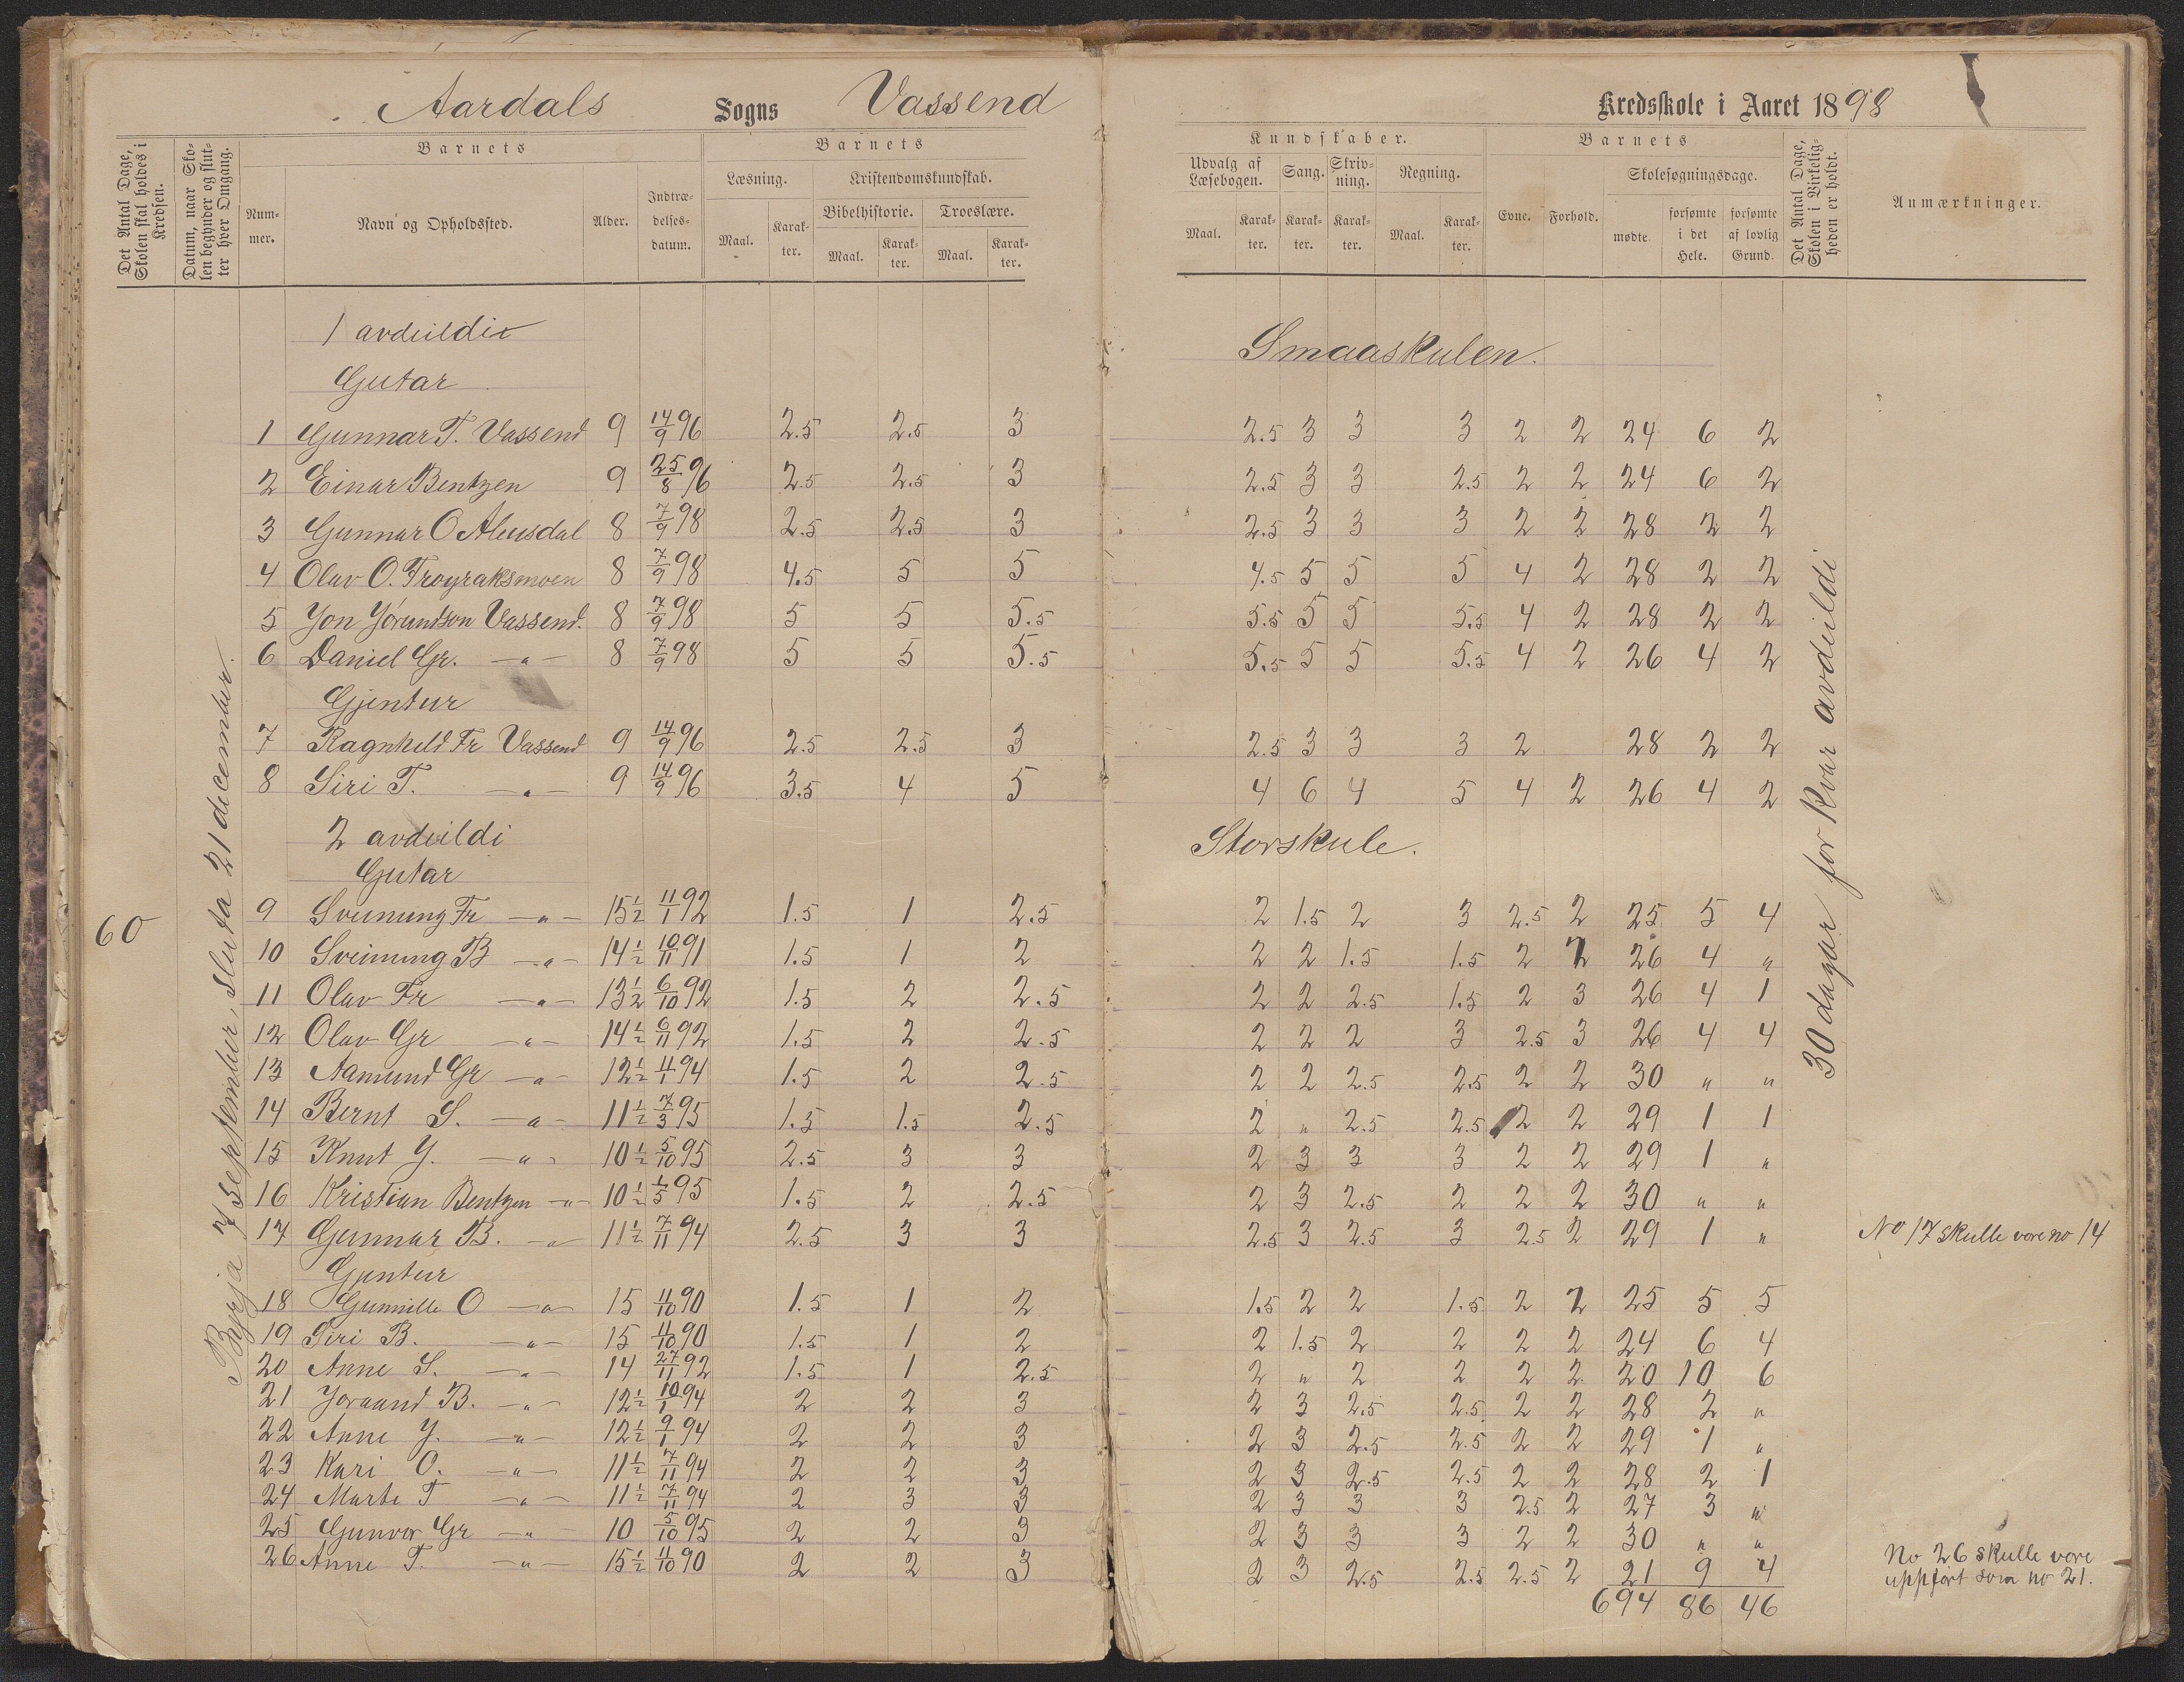 Aardals Sogns Vassend Kredsskole i Aaret 1898
Det Antal Dage, Skolen skal holdes i Kredsen.
Datum, naar Skolen begynder og slutter hver Omgang.
Barnets
Nummer.
Navn og Opholdssted.
Alder.
Indtrædelsesdatum.
Barnets
Læsning.
Maal.
Karakter.
Kristendomskundskab.
Bibelhistorie.
Maal.
Karakter.
Troeslære.
Maal.
Karakter.
Kundskaber.
Udvalg af Læsebogen.
Maal.
Karakter.
Sang.
Karakter.
Skrivning.
Karakter.
Regning.
Maal.
Karakter.
Barnets
Evne.
Forhold.
Skolesøgningsdage.
mødte
forsømte i det Hele.
forsømte af lovlig Grund.
Det Antal Dage, Skolen i Virkeligheden er holdt.
Anmærkninger.
60
Byrja 7 september, sluta 21 december.
30 dagar for kvar avdeildi
1 avdeildi
Smaaskulen.
Gutar
1 Gunnar T. Vassend 9 14/9 96 2.5 2.5 3 2.5 3 3 3 2 2 24 6 2
2 Einar Bentzen 9 25/8 96 2.5 2.5 3 2.5 3 3 2.5 2 2 24 6 2
3 Gunnar O 8 7/9 98 2.5 2.5 3 2.5 3 3 3 2 2 28 2 2
4 Olav O. 8 7/9 98 4.5 5 5 4.5 5 5 5 4 2 28 2 2
5 Jon Jörundson Vassend. 8 7/9 98 5 5 5.5 5.5 5 5 5.5 4 2 28 2 2
6 Daniel Gr. -"- 8 7/9 98 5 5 5.5 5.5 5 5 5.5 4 2 26 4 2
Gjentur
7 Ragnheld Fr Vassend 9 14/9 96 2.5 2.5 3 2.5 3 3 3 2 28 2 2
8 Siri T. -"- 9 14/9 96 3.5 4 5 4 6 4 5 4 2 26 4 2
2 avdeildi
Storskule.
Gutar
9 Sveinung Fr -"- 15½ 11/1 92 1.5 1 2.5 2 1.5 2 3 2.5 2 25 5 4
10 Sveinung B -"- 14½ 10/11 91 1.5 1 2 2 2 1.5 1.5 2 2 26 4 "
11 Olav Fr -"- 13½ 6/10 92 1.5 2 2.5 2 2 2.5 1.5 2 3 26 4 1
12 Olav Gr -"- 14½ 6/11 92 1.5 2 2.5 2 2 2 3 2.5 3 26 4 4
13 Aamund Gr -"- 12½ 11/1 94 1.5 2 2.5 2 2 2.5 2.5 2 2 30 " "
14 Bernt S. -"- 11½ 7/3 95 1.5 1.5 2.5 2 " 2.5 2.5 2 2 29 1 1
15 Knut J. -"- 10½ 5/10 95 2.5 3 3 2 3 3 3 2 2 29 1 "
16 Kristian Bentzen -"- 10½ 1/5 95 1.5 2 2.5 2 3 2.5 2 2 2 30 " "
17 Gunnar B. -"- 11½ 7/11 94 2.5 3 3 2.5 3 2.5 3 2.5 2 29 1 " No 17 skulle vore no 14
Gjentur
18 Gunnille O -"- 15 11/10 90 1.5 1 2 1.5 2 2 1.5 2 2 25 5 5
19 Siri B. -"- 15 11/10 90 1.5 1 2 2 1.5 2 2 2 2 24 6 4
20 Anne S. -"- 14 27/11 92 1.5 1 2.5 2 " 2 2 2 2 20 10 6
21 Joraand B. -"- 12½ 10/1 94 2 2 3 2 3 2.5 2.5 2 2 28 2 "
22 Anne J. -"- 12½ 9/1 94 2 2 3 2 3 2.5 2.5 2 2 29 1 "
23 Kari O. -"- 11½ 7/11 94 2 2 3 2 3 2.5 2.5 2 2 28 2 1
24 Marte T -"- 11½ 7/11 94 2 3 3 2 3 3 3 2.5 2 27 3 "
25 Gunvor Gr -"- 10 5/10 95 2 2 3 2 3 3 3 2 2 30 " "
26 Anne T. -"- 15½ 11/10 90 2 2 3 2 3 2.5 2.5 2.5 2 21 9 4
No 26 skulle vore
uppført som no 21.
694 86 46